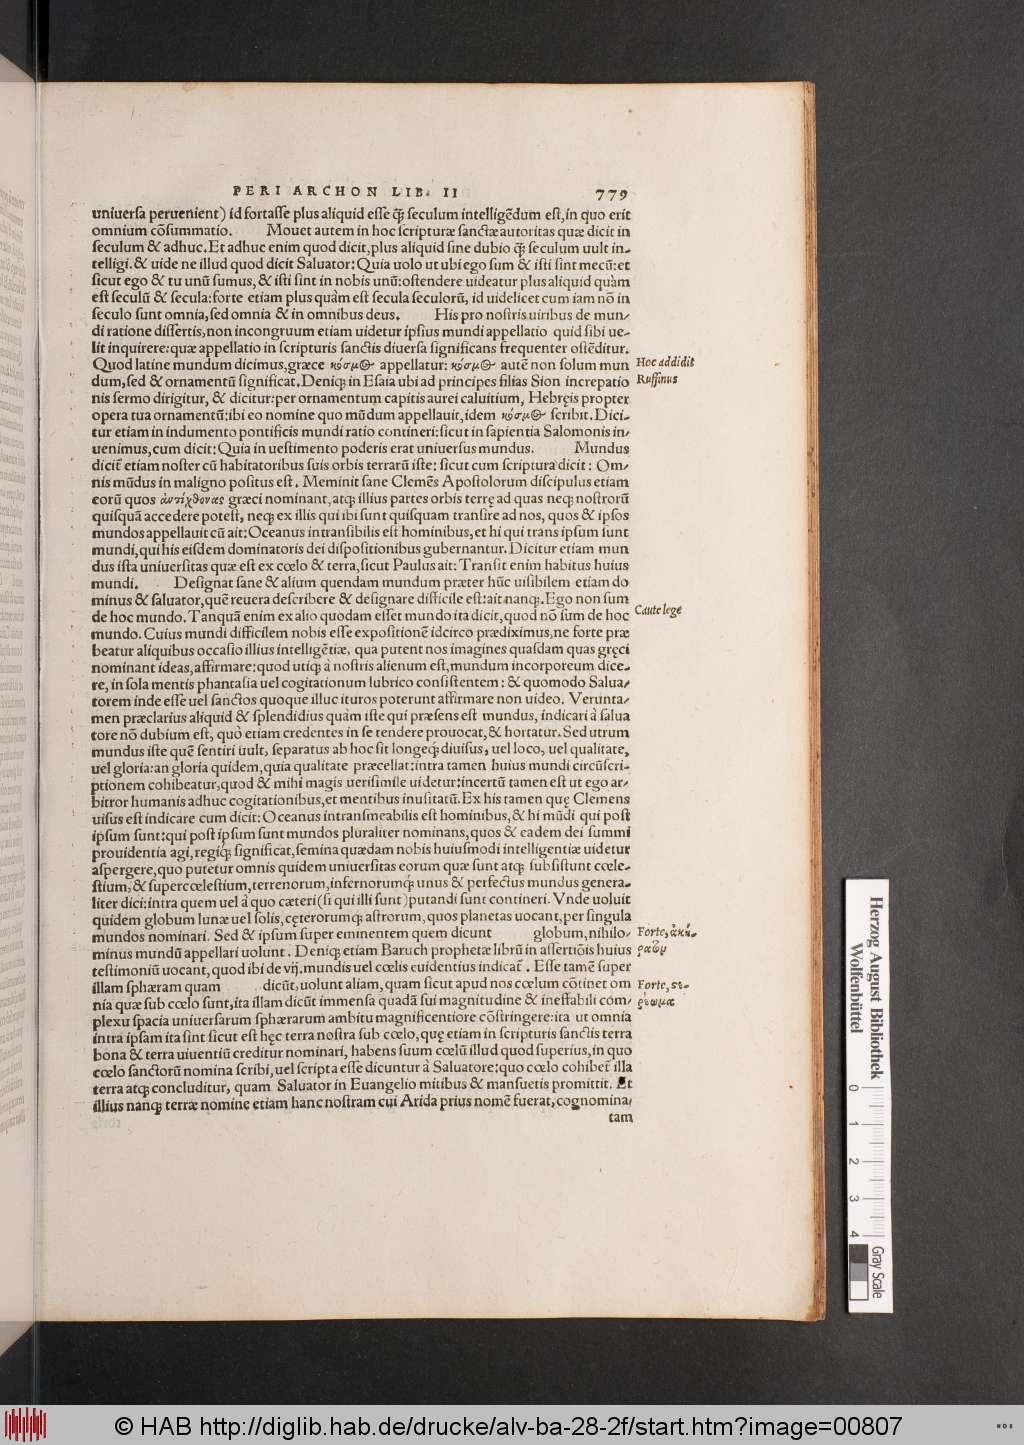 PERI ARCHON LIB. II 779
uniuersa peruenient) id fortasse plus aliquid esse q̃ seculum intelligẽdum est, in quo erit
omnium cõsummatio. Mouet autem in hoc scripturæ sanctæ autoritas quæ dicit in
seculum & adhuc. Et adhuc enim quod dicit, plus aliquid sine dubio q̃ seculum uult in-
telligi. & uide ne illud quod dicit Saluator: Quia uolo ut ubi ego sum & isti sint mecũ: et
sicut ego & tu unũ sumus, & isti sint in nobis unũ: ostendere uideatur plus aliquid quàm
est seculũ & secula: forte etiam plus quàm est secula seculorũ, id uidelicet cum iam nõ in
seculo sunt omnia, sed omnia & in omnibus deus. His pro nostris uiribus de mun-
di ratione dissertis, non incongruum etiam uidetur ipsius mundi appellatio quid sibi ue-
lit inquirere: quæ appellatio in scripturis sanctis diuersa significans frequenter ostẽditur.
Quod latine mundum dicimus, græce κόσμος appellatur: κόσμος autẽ non solum mun
Hoc addidit
dum, sed & ornamentũ significat. Deniq; in Esaia ubi ad principes filias Sion increpatio
Ruffinus
nis sermo dirigitur, & dicitur: per ornamentum capitis aurei caluitium, Hebręis propter
opera tua ornamentũ: ibi eo nomine quo mũdum appellauit, idem κόσμος scribit. Dici-
tur etiam in indumento pontificis mundi ratio contineri: sicut in sapientia Salomonis in-
uenimus, cum dicit: Quia in uestimento poderis erat uniuersus mundus. Mundus
dicit̃ etiam noster cũ habitatoribus suis orbis terrarũ iste: sicut cum scriptura dicit: Om-
nis mũdus in maligno positus est. Meminit sane Clemẽs Apostolorum discipulus etiam
eorũ quos ἀντίχθονας græci nominant, atq; illius partes orbis terrę ad quas neq; nostrorũ
quisquã accedere potest, neq; ex illis qui ibi sunt quisquam transire ad nos, quos & ipsos
mundos appellauit cũ ait: Oceanus intransibilis est hominibus, et hi qui trans ipsum sunt
mundi, qui his eisdem dominatoris dei dispositionibus gubernantur. Dicitur etiam mun
dus ista uniuersitas quæ est ex cœlo & terra, sicut Paulus ait: Transit enim habitus huius
mundi. Designat sane & alium quendam mundum præter hũc uisibilem etiam do
minus & saluator, quẽ reuera describere & designare difficile est: ait nanq;. Ego non sum
de hoc mundo. Tanquã enim ex alio quodam esset mundo ita dicit, quod nõ sum de hoc
Caute lege
mundo. Cuius mundi difficilem nobis esse expositionẽ idcirco prædiximus, ne forte præ
beatur aliquibus occasio illius intelligẽtiæ, qua putent nos imagines quasdam quas gręci
nominant ideas, affirmare: quod utiq; à nostris alienum est, mundum incorporeum dice-
re, in sola mentis phantasia uel cogitationum lubrico consistentem: & quomodo Salua-
torem inde esse uel sanctos quoque illuc ituros poterunt affirmare non uideo. Verunta-
men præclarius aliquid & splendidius quàm iste qui præsens est mundus, indicari à salua
tore nõ dubium est, quò etiam credentes in se tendere prouocat, & hortatur. Sed utrum
mundus iste quẽ sentiri uult, separatus ab hoc sit longeq; diuisus, uel loco, uel qualitate,
uel gloria: an gloria quidem, quia qualitate præcellat: intra tamen huius mundi circũscri-
ptionem cohibeatur, quod & mihi magis uerisimile uidetur: incertũ tamen est ut ego ar-
bitror humanis adhuc cogitationibus, et mentibus inusitatũ. Ex his tamen quę Clemens
uisus est indicare cum dicit: Oceanus intransmeabilis est hominibus, & hi mũdi qui post
ipsum sunt: qui post ipsum sunt mundos pluraliter nominans, quos & eadem dei summi
prouidentia agi, regiq; significat, semina quædam nobis huiusmodi intelligentiæ uidetur
aspergere, quo putetur omnis quidem uniuersitas eorum quæ sunt atq; subsistunt cœle-
stium, & supercœlestium, terrenorum, infernorumq; unus & perfectus mundus genera-
liter dici: intra quem uel à quo cæteri (si qui illi sunt) putandi sunt contineri. Vnde uoluit
quidem globum lunæ uel solis, cęterorumq; astrorum, quos planetas uocant, per singula
mundos nominari. Sed & ipsum super eminentem quem dicunt globum, nihilo-
Forte, ἀκή-
minus mundũ appellari uolunt. Deniq; etiam Baruch prophetæ librũ in assertiõis huius
ρατῶμ
testimoniũ uocant, quod ibi de vij. mundis uel cœlis euidentius indicat̃. Esse tamẽ super
illam sphæram quam dicũt, uolunt aliam, quam sicut apud nos cœlum cõtinet om
Forte, στε-
nia quæ sub cœlo sunt, ita illam dicũt immensa quadã sui magnitudine & ineffabili com-
ρέωμα
plexu spacia uniuersarum sphærarum ambitu magnificentiore cõstringere: ita ut omnia
intra ipsam ita sint sicut est hęc terra nostra sub cœlo, quę etiam in scripturis sanctis terra
bona & terra uiuentiũ creditur nominari, habens suum cœlũ illud quod superius, in quo
cœlo sanctorũ nomina scribi, uel scripta esse dicuntur à Saluatore: quo cœlo cohibet̃ illa
terra atq; concluditur, quam Saluator in Euangelio mitibus & mansuetis promittit. Et
illius nanq; terræ nomine etiam hanc nostram cui Arida prius nomẽ fuerat, cognomina-
tam
Herzog August Bibliothek
Wolfenbüttel
0 1 2 3 4
Gray Scale
© HAB http://diglib.hab.de/drucke/alv-ba-28-2f/start.htm?image=00807